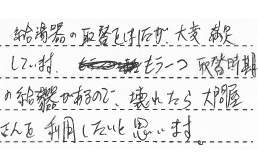 給湯器の取替をしましたが 大変 満足
しています。 もう一つ 取替時期
の給湯器があるので、壊れたら 大問屋
さんを 利用したいと思います。